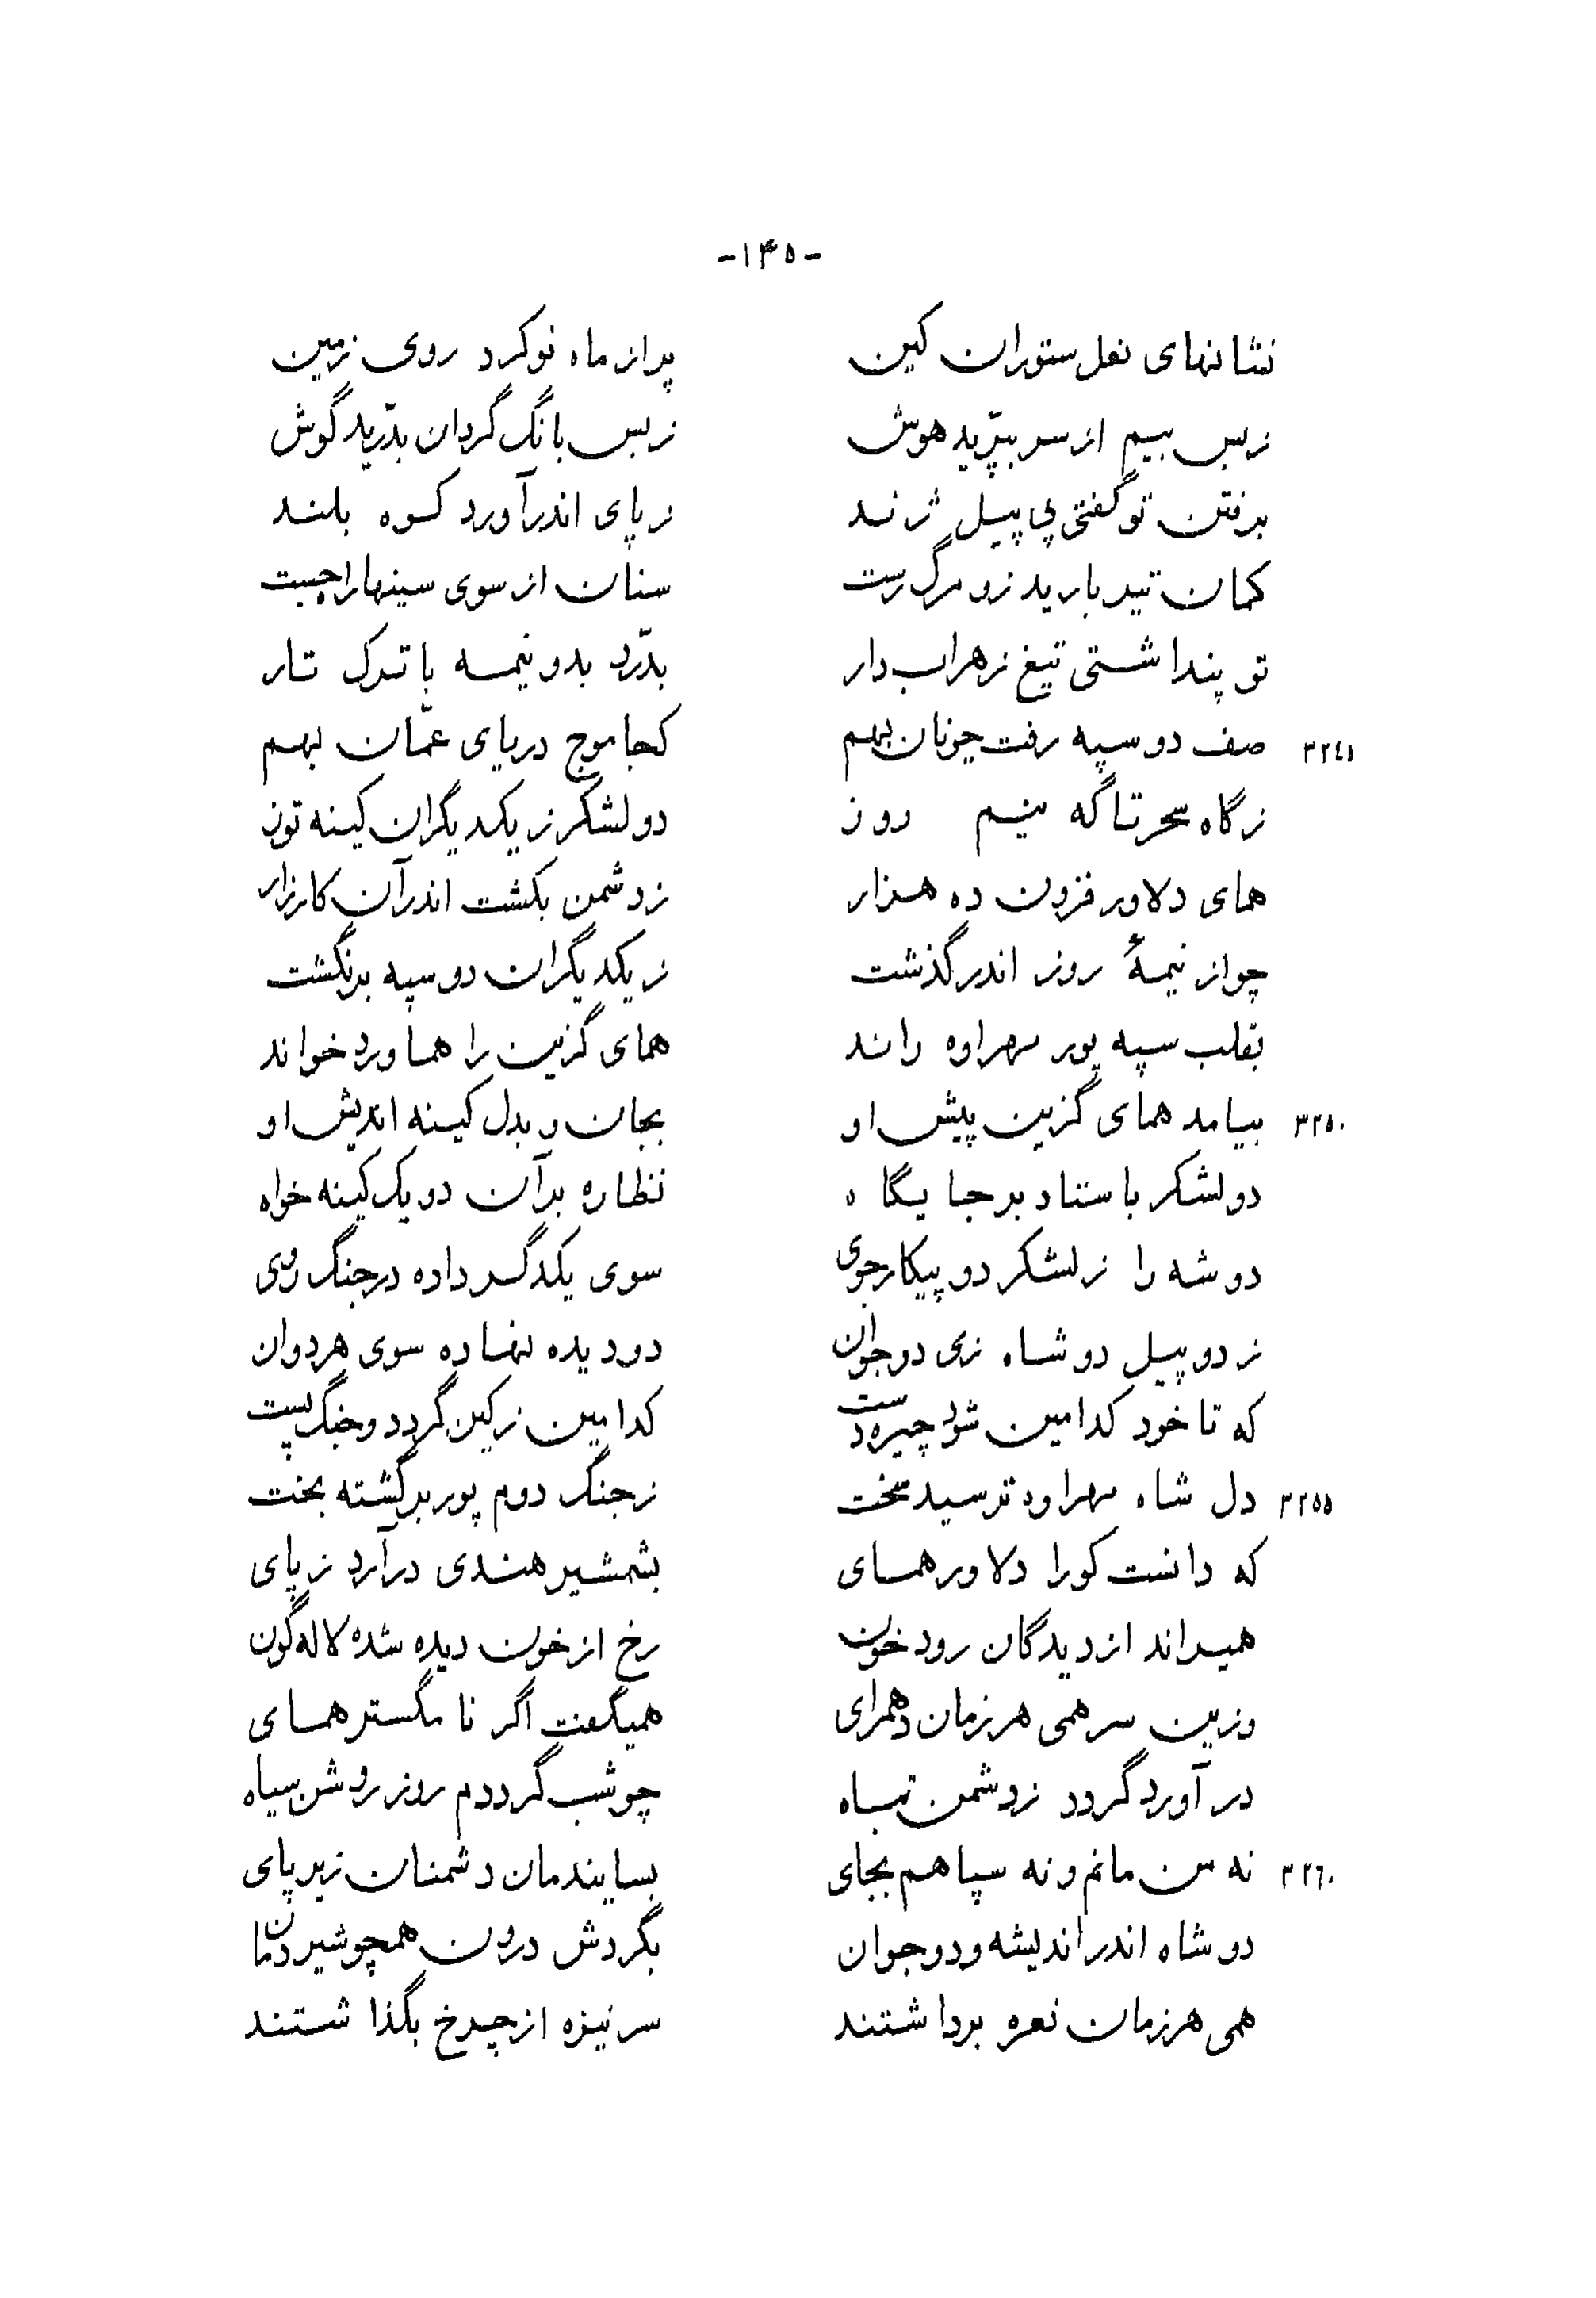 -۱۴۵-
نشانهای نعل ستوران کین پر از ماه نو کرد روی زمین
ز بس بیم از سر بپرّید هوش ز بس بانگ گردان بدرّید گوش
برفتن تو گفتی پی پیل ژند ز پای اندر آورد کوه بلند
کمان تیر بارید زو مرگ رست سنان از سوی سینها راه جست
تو پنداشتی تیغ زهراب دار بدرّد بدو نیمه با ترک تار
۳۲٤۵ صف دو سپه رفت چونان بهم کجا موج دریای عمّان بهم
ز گاه سحر تا گه نیم روز دو لشکر ز یکدیگران کینه توز
همای دلاور فزون ده هزار ز دشمن بکشت اندر آن کارزار
چو از نیمهٔ روز اندر گذشت ز یکدیگران دو سپه برنگشت
بقلب سپه پور مهراوه راند همای گزین را هماورد خواند
۳۲۵۰ بیامد همای گزین پیش او بجان و بدل کینه اندیش او
دو لشکر باستاد بر جایگاه نظاره بر آن دو یک کینه خواه
دو شه را ز لشکر دو پیکارجوی سوی یکدگر داده در جنگ روی
ز دو پیل دو شاه زی دو جوان دو دیده نهاده سوی هردوان
که تا خود کدامین شود چیره دست کدامین ز کین گردد و جنگ پست
۳۲۵۵ دل شاه مهراوه ترسید سخت ز جنگ دوم پور برگشته بخت
که دانست کورا دلاور همای بشمشیر هندی درآرد ز پای
همیراند از دیدگان رود خون رخ از خون دیده شده لاله گون
وزین سر همی هر زمان دهمرای همیگفت اگر نامگستر همای
در آورد گردد ز دشمن تباه چو شب گرددم روز روشن سیاه
۳۲٦۰ نه من مانم و نه سپاهم بجای بسایندمان دشمنان زیر پای
دو شاه اندر اندیشه و دو جوان بگردش درون همچو شیر دمان
همی هر زمان نعره برداشتند سر نیزه از چرخ بگذاشتند